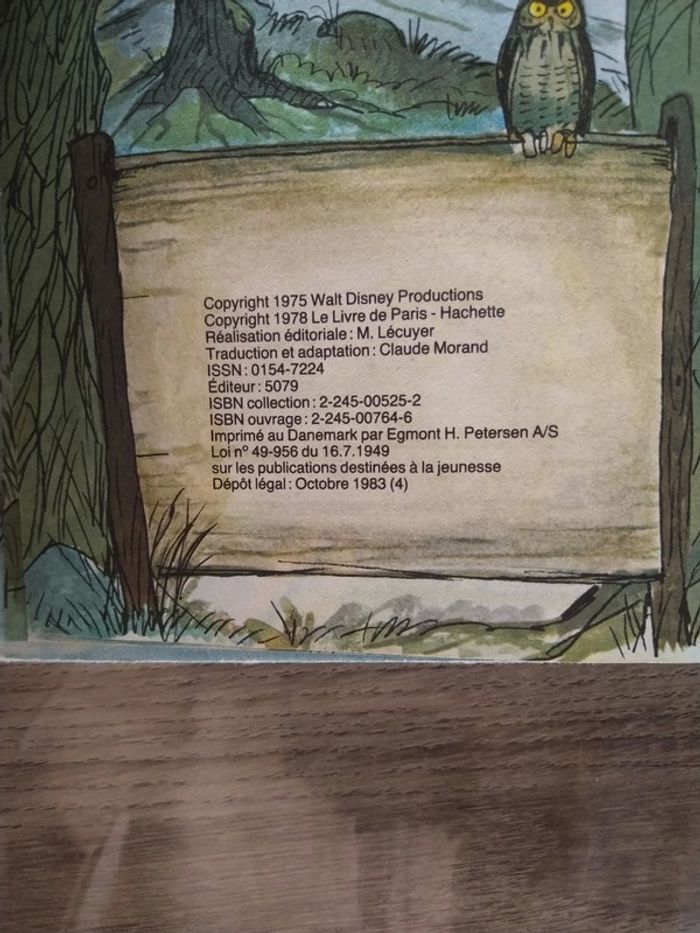 Copyright 1975 Walt Disney Productions
Copyright 1978 Le Livre de Paris - Hachette
Réalisation éditoriale : M. Lécuyer
Traduction et adaptation : Claude Morand
ISSN : 0154-7224
Éditeur : 5079
ISBN collection : 2-245-00525-2
ISBN ouvrage : 2-245-00764-6
Imprimé au Danemark par Egmont H. Petersen A/S
Loi nº 49-956 du 16.7.1949
sur les publications destinées à la jeunesse
Dépôt légal : Octobre 1983 (4)